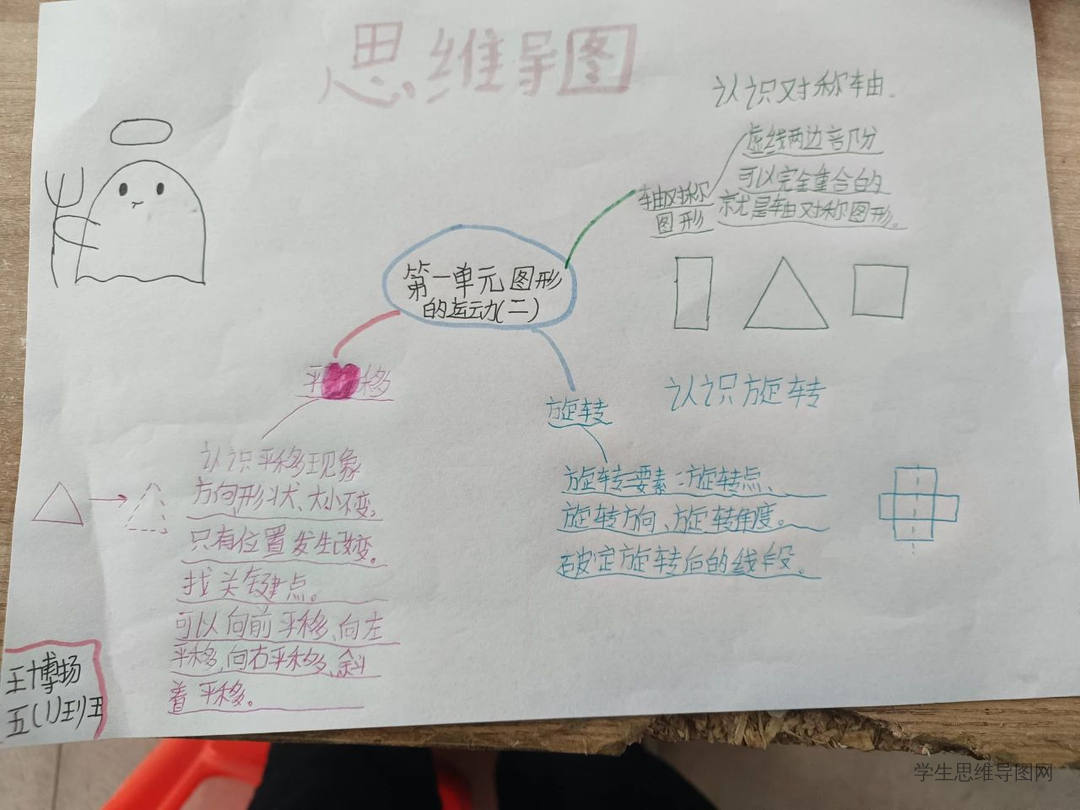 思维导图
认识对称轴.
虚线两边部分
可以完全重合的
就是轴对称图形。
轴对称
图形
第一单元图形
的运动(二)
平移
认识平移现象
方向形状、大小不变。
只有位置发生改变。
找关键点。
可以向前平移、向左
平移、向右平移、斜
着平移。
旋转
认识旋转
旋转三要素:旋转点、
旋转方向、旋转角度。
确定旋转后的线段。
王博扬
五(1)班
学生思维导图网